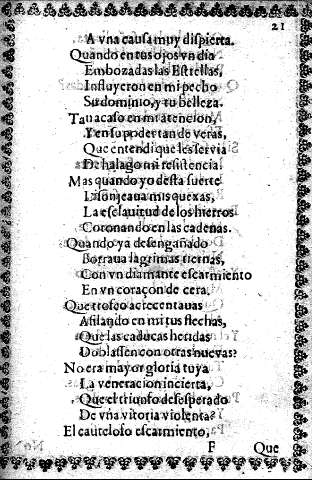 21
A vna causa muy dispierta.
Quando en tus ojos vn dia
Embozadas las Estrellas,
Influyeron en mi pecho
Su dominio, y tu belleza.
Tan acaso en mi atencion,
Y en su poder tan de veras,
Que entendi que les servia
De halago mi resistencia.
Mas quando yo desta suerte
Lisonjeaua mis quexas,
La esclauitud de los hierros
Coronando en las cadenas.
Quando ya desengañado
Borraua lagrimas tiernas,
Con vn diamante escarmiento
En vn coraçon de cera.
Que trofeo acrecentauas
Afilando en mi tus flechas,
Que las caducas heridas
Doblassen con otras nuevas?
No era mayor gloria tuya
La veneracion incierta,
Que el triunfo desesperado
De vna vitoria violenta?
El cauteloso escarmiento,
F Que